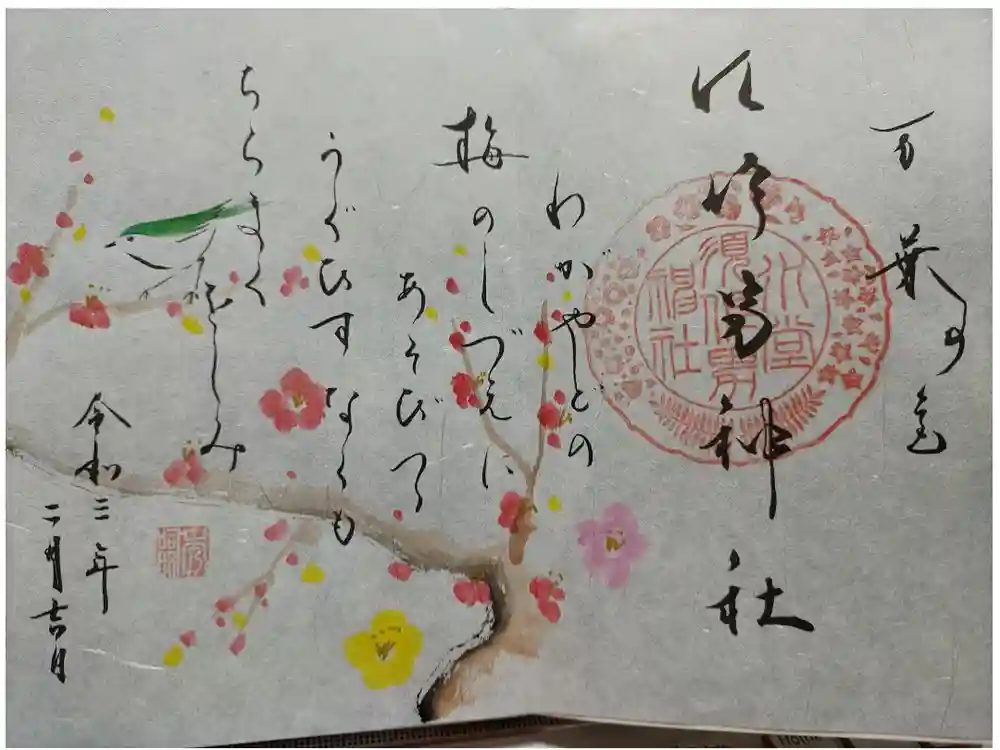 万葉の
須佐男神社
須佐男
神社
わがやどの
梅のしづえに
あそびつつ
うぐひすなくも
ちらまく
をしみ
令和三年
二月吉日